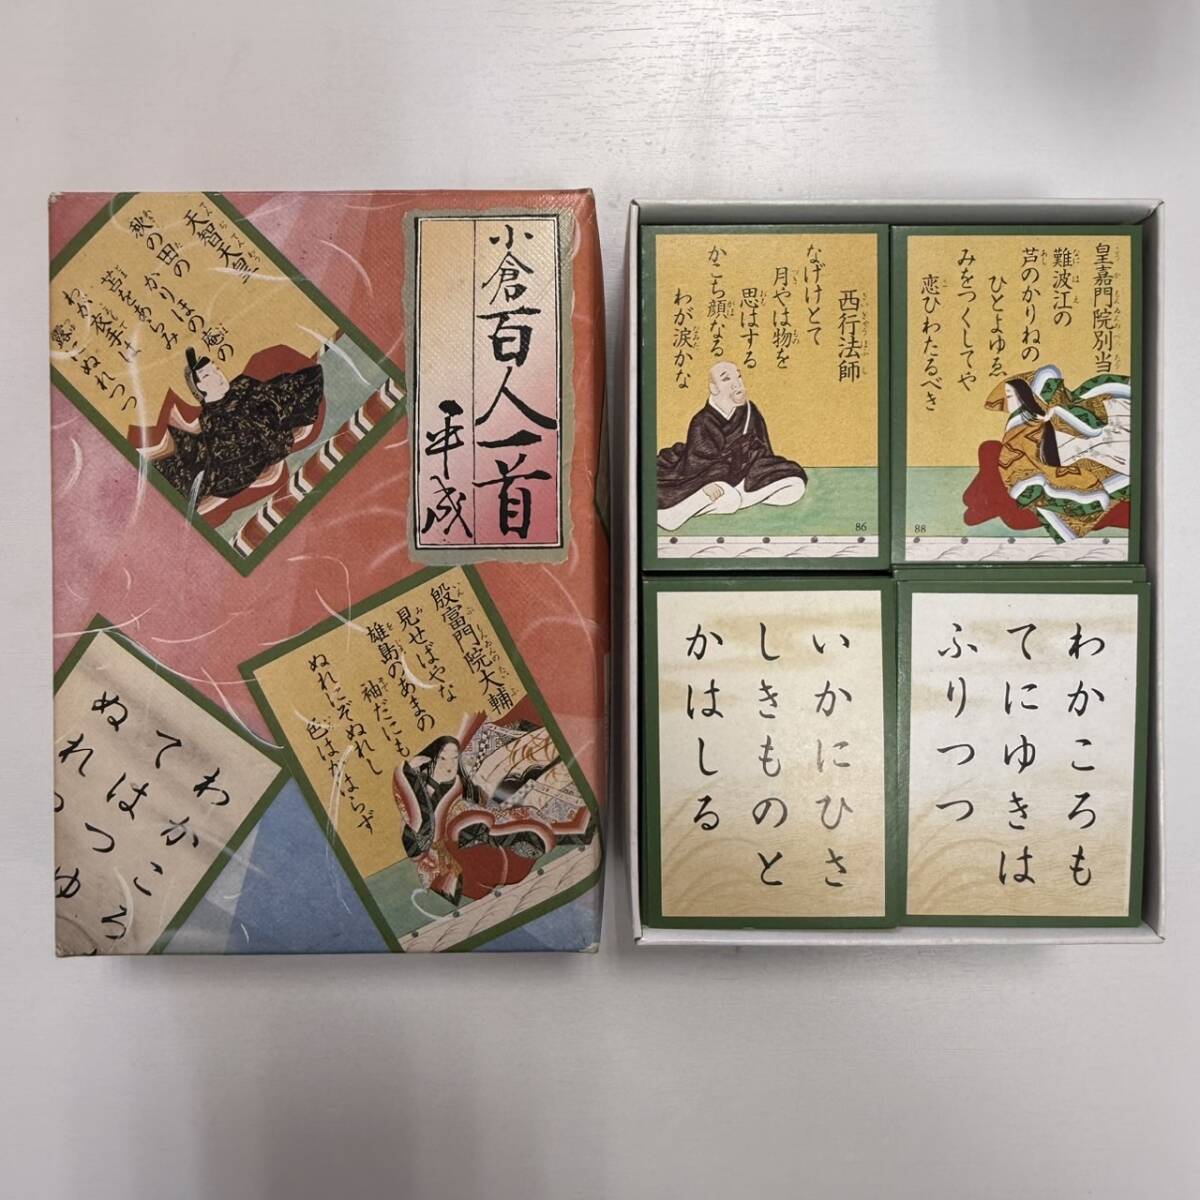 小倉百人一首
平成
天智天皇
秋の田の
かりほの庵の
苫をあらみ
わが衣手は
露にぬれつつ
殷富門院大輔
見せばやな
雄島のあまの
袖だにも
ぬれにぞぬれし
色はかはらず
わがころ
てには
ぬれつ
西行法師
なげけとて
月やは物を
思はする
かこち顔なる
わが涙かな
86
皇嘉門院別当
難波江の
芦のかりねの
ひとよゆゑ
みをつくしてや
恋ひわたるべき
88
いかにひさ
しきものと
かはしる
わかころも
てにゆきは
ふりつつ